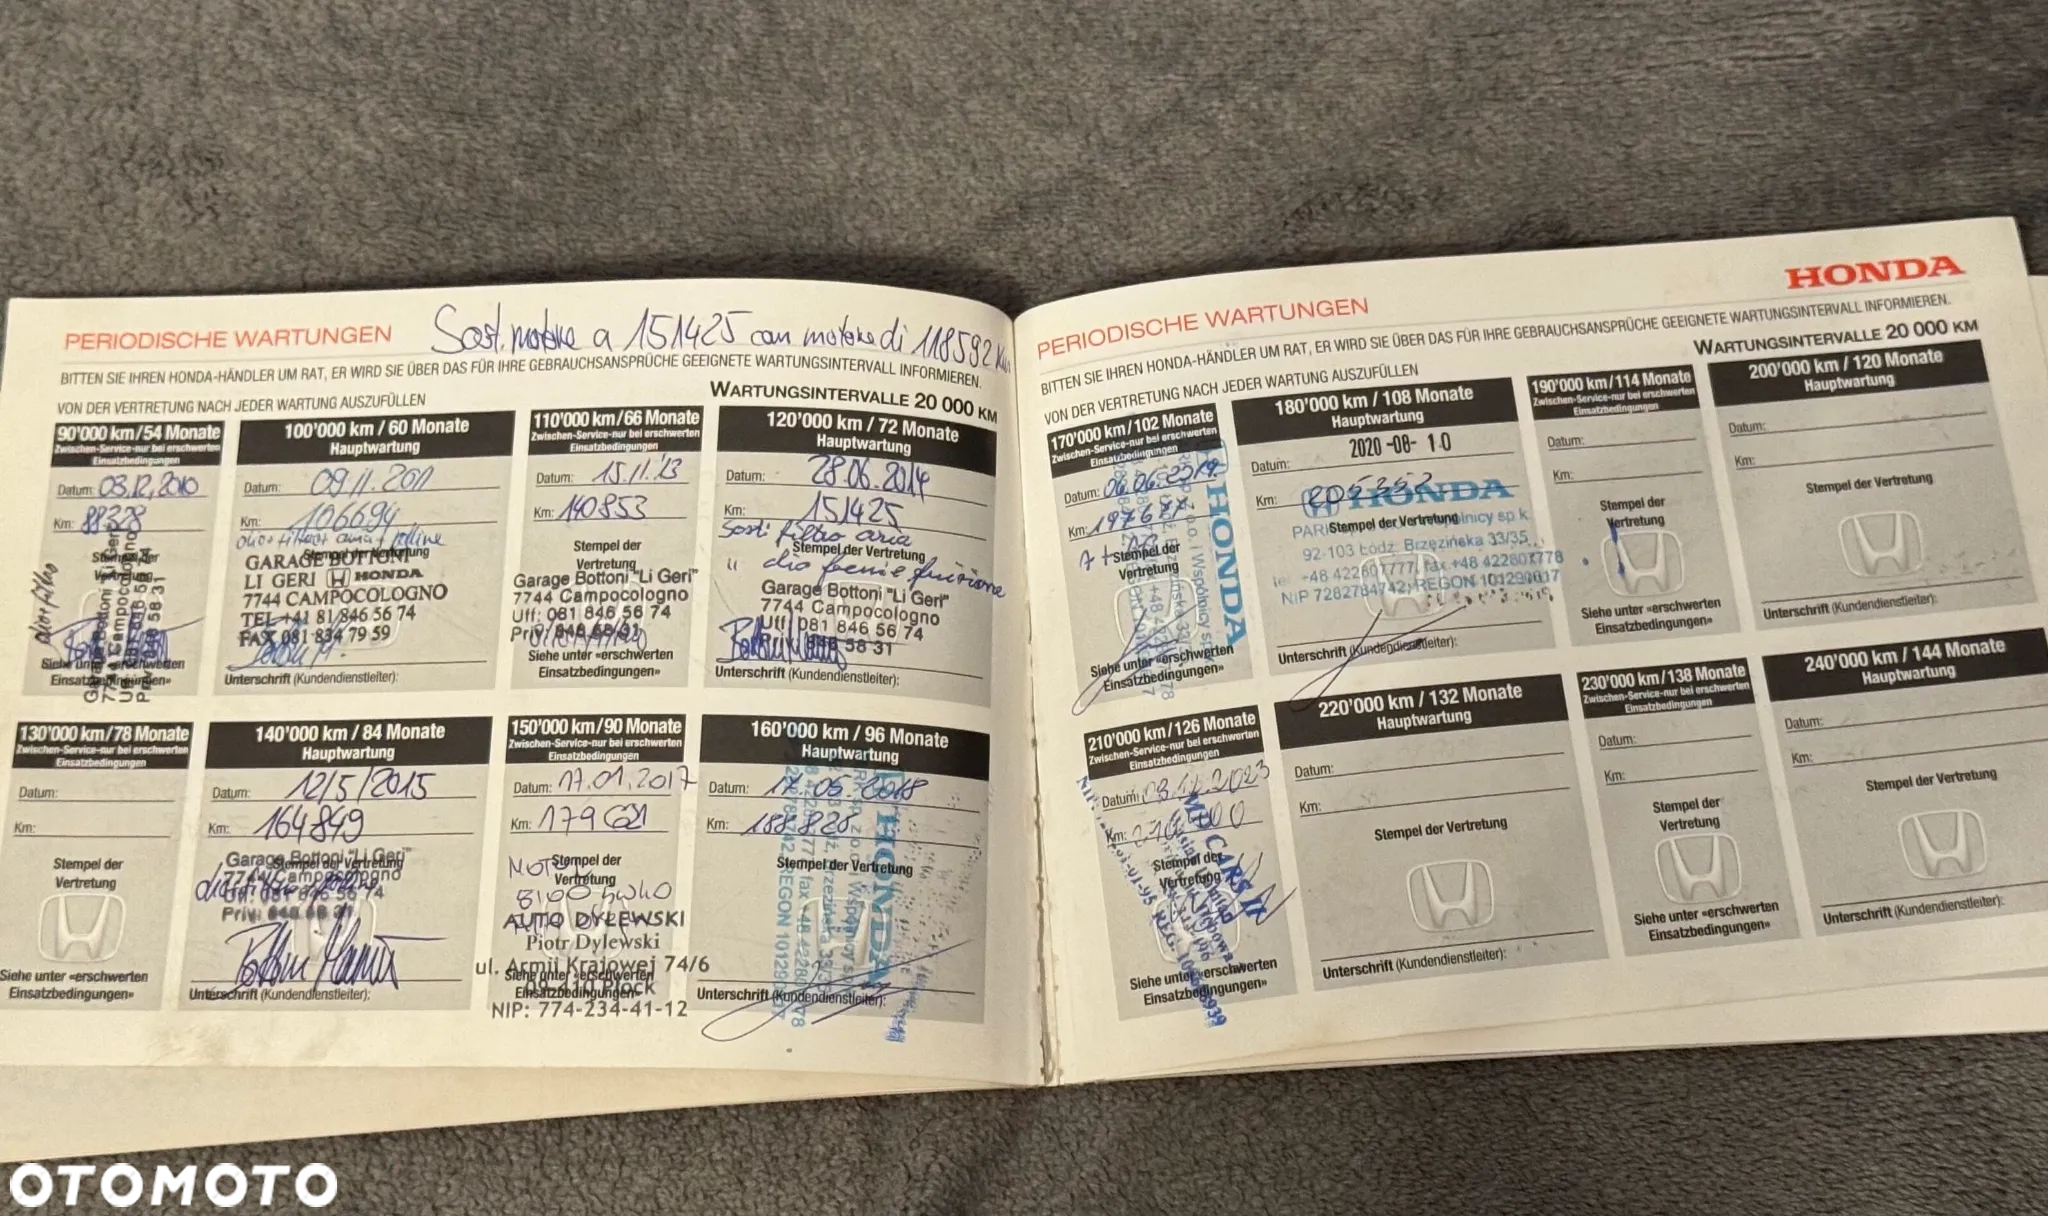 PERIODISCHE WARTUNGEN
Sost. motore a 151425 con motore di 118592 Km
BITTEN SIE IHREN HONDA-HÄNDLER UM RAT, ER WIRD SIE ÜBER DAS FÜR IHRE GEBRAUCHSANSPRÜCHE GEEIGNETE WARTUNGSINTERVALL INFORMIEREN.
VON DER VERTRETUNG NACH JEDER WARTUNG AUSZUFÜLLEN
WARTUNGSINTERVALLE 20 000 KM
90'000 km/54 Monate
Zwischen-Service-nur bei erschwerten
Einsatzbedingungen
Datum: 03.12.2010
Km: 88328
Stempel der
Vertretung
olio+filtro
Garage Bottoni "Li Geri"
7744 Campocologno
Siehe unter «erschwerten
Einsatzbedingungen»
100'000 km / 60 Monate
Hauptwartung
Datum: 09.11.2011
Km: 106694
Stempel der Vertretung
GARAGE BOTTONI
LI GERI HONDA
7744 CAMPOCOLOGNO
TEL +41 81 846 56 74
FAX 081 834 79 59
Unterschrift (Kundendienstleiter):
110'000 km/66 Monate
Zwischen-Service-nur bei erschwerten
Einsatzbedingungen
Datum: 15.11.'13
Km: 140853
Stempel der
Vertretung
Garage Bottoni "Li Geri"
7744 Campocologno
Uff: 081 846 56 74
Siehe unter «erschwerten
Einsatzbedingungen»
120'000 km / 72 Monate
Hauptwartung
Datum: 28.06.2014
Km: 151425
Sost. filtro aria
Stempel der Vertretung
" olio freni e frizione
Garage Bottoni "Li Geri"
7744 Campocologno
Uff: 081 846 56 74
Unterschrift (Kundendienstleiter):
130'000 km/78 Monate
Zwischen-Service-nur bei erschwerten
Einsatzbedingungen
Datum:
Km:
Stempel der
Vertretung
Siehe unter «erschwerten
Einsatzbedingungen»
140'000 km / 84 Monate
Hauptwartung
Datum: 12/5/2015
Km: 164849
Garage Bottoni "Li Geri"
Stempel der Vertretung
7744 Campocologno
Unterschrift (Kundendienstleiter):
150'000 km/90 Monate
Zwischen-Service-nur bei erschwerten
Einsatzbedingungen
Datum: 17.01.2017
Km: 179621
Stempel der
Vertretung
AUTO DYLEWSKI
Piotr Dylewski
ul. Armii Krajowej 74/6
09-410 Płock
Siehe unter «erschwerten
Einsatzbedingungen»
NIP: 774-234-41-12
160'000 km / 96 Monate
Hauptwartung
Datum: 17.05.2018
Km: 188828
Stempel der Vertretung
HONDA
Unterschrift (Kundendienstleiter):
HONDA
PERIODISCHE WARTUNGEN
BITTEN SIE IHREN HONDA-HÄNDLER UM RAT, ER WIRD SIE ÜBER DAS FÜR IHRE GEBRAUCHSANSPRÜCHE GEEIGNETE WARTUNGSINTERVALL INFORMIEREN.
VON DER VERTRETUNG NACH JEDER WARTUNG AUSZUFÜLLEN
WARTUNGSINTERVALLE 20 000 KM
170'000 km/102 Monate
Zwischen-Service-nur bei erschwerten
Einsatzbedingungen
Datum: 06.06.2019.
Km: 197677
Stempel der
Vertretung
HONDA
Siehe unter «erschwerten
Einsatzbedingungen»
180'000 km / 108 Monate
Hauptwartung
Datum: 2020-08-10
Km: 205352
HONDA
Stempel der Vertretung
92-103 Łódź, Brzezińska 33/35
tel. +48 422807777, fax +48 422807778
NIP 7282784742, REGON 101290017
Unterschrift (Kundendienstleiter):
190'000 km/114 Monate
Zwischen-Service-nur bei erschwerten
Einsatzbedingungen
Datum:
Km:
Stempel der
Vertretung
Siehe unter «erschwerten
Einsatzbedingungen»
200'000 km / 120 Monate
Hauptwartung
Datum:
Km:
Stempel der Vertretung
Unterschrift (Kundendienstleiter):
210'000 km/126 Monate
Zwischen-Service-nur bei erschwerten
Einsatzbedingungen
Datum:
Km:
Stempel der
Vertretung
Siehe unter «erschwerten
Einsatzbedingungen»
220'000 km / 132 Monate
Hauptwartung
Datum:
Km:
Stempel der Vertretung
Unterschrift (Kundendienstleiter):
230'000 km/138 Monate
Zwischen-Service-nur bei erschwerten
Einsatzbedingungen
Datum:
Km:
Stempel der
Vertretung
Siehe unter «erschwerten
Einsatzbedingungen»
240'000 km / 144 Monate
Hauptwartung
Datum:
Km:
Stempel der Vertretung
Unterschrift (Kundendienstleiter):
OTOMOTO